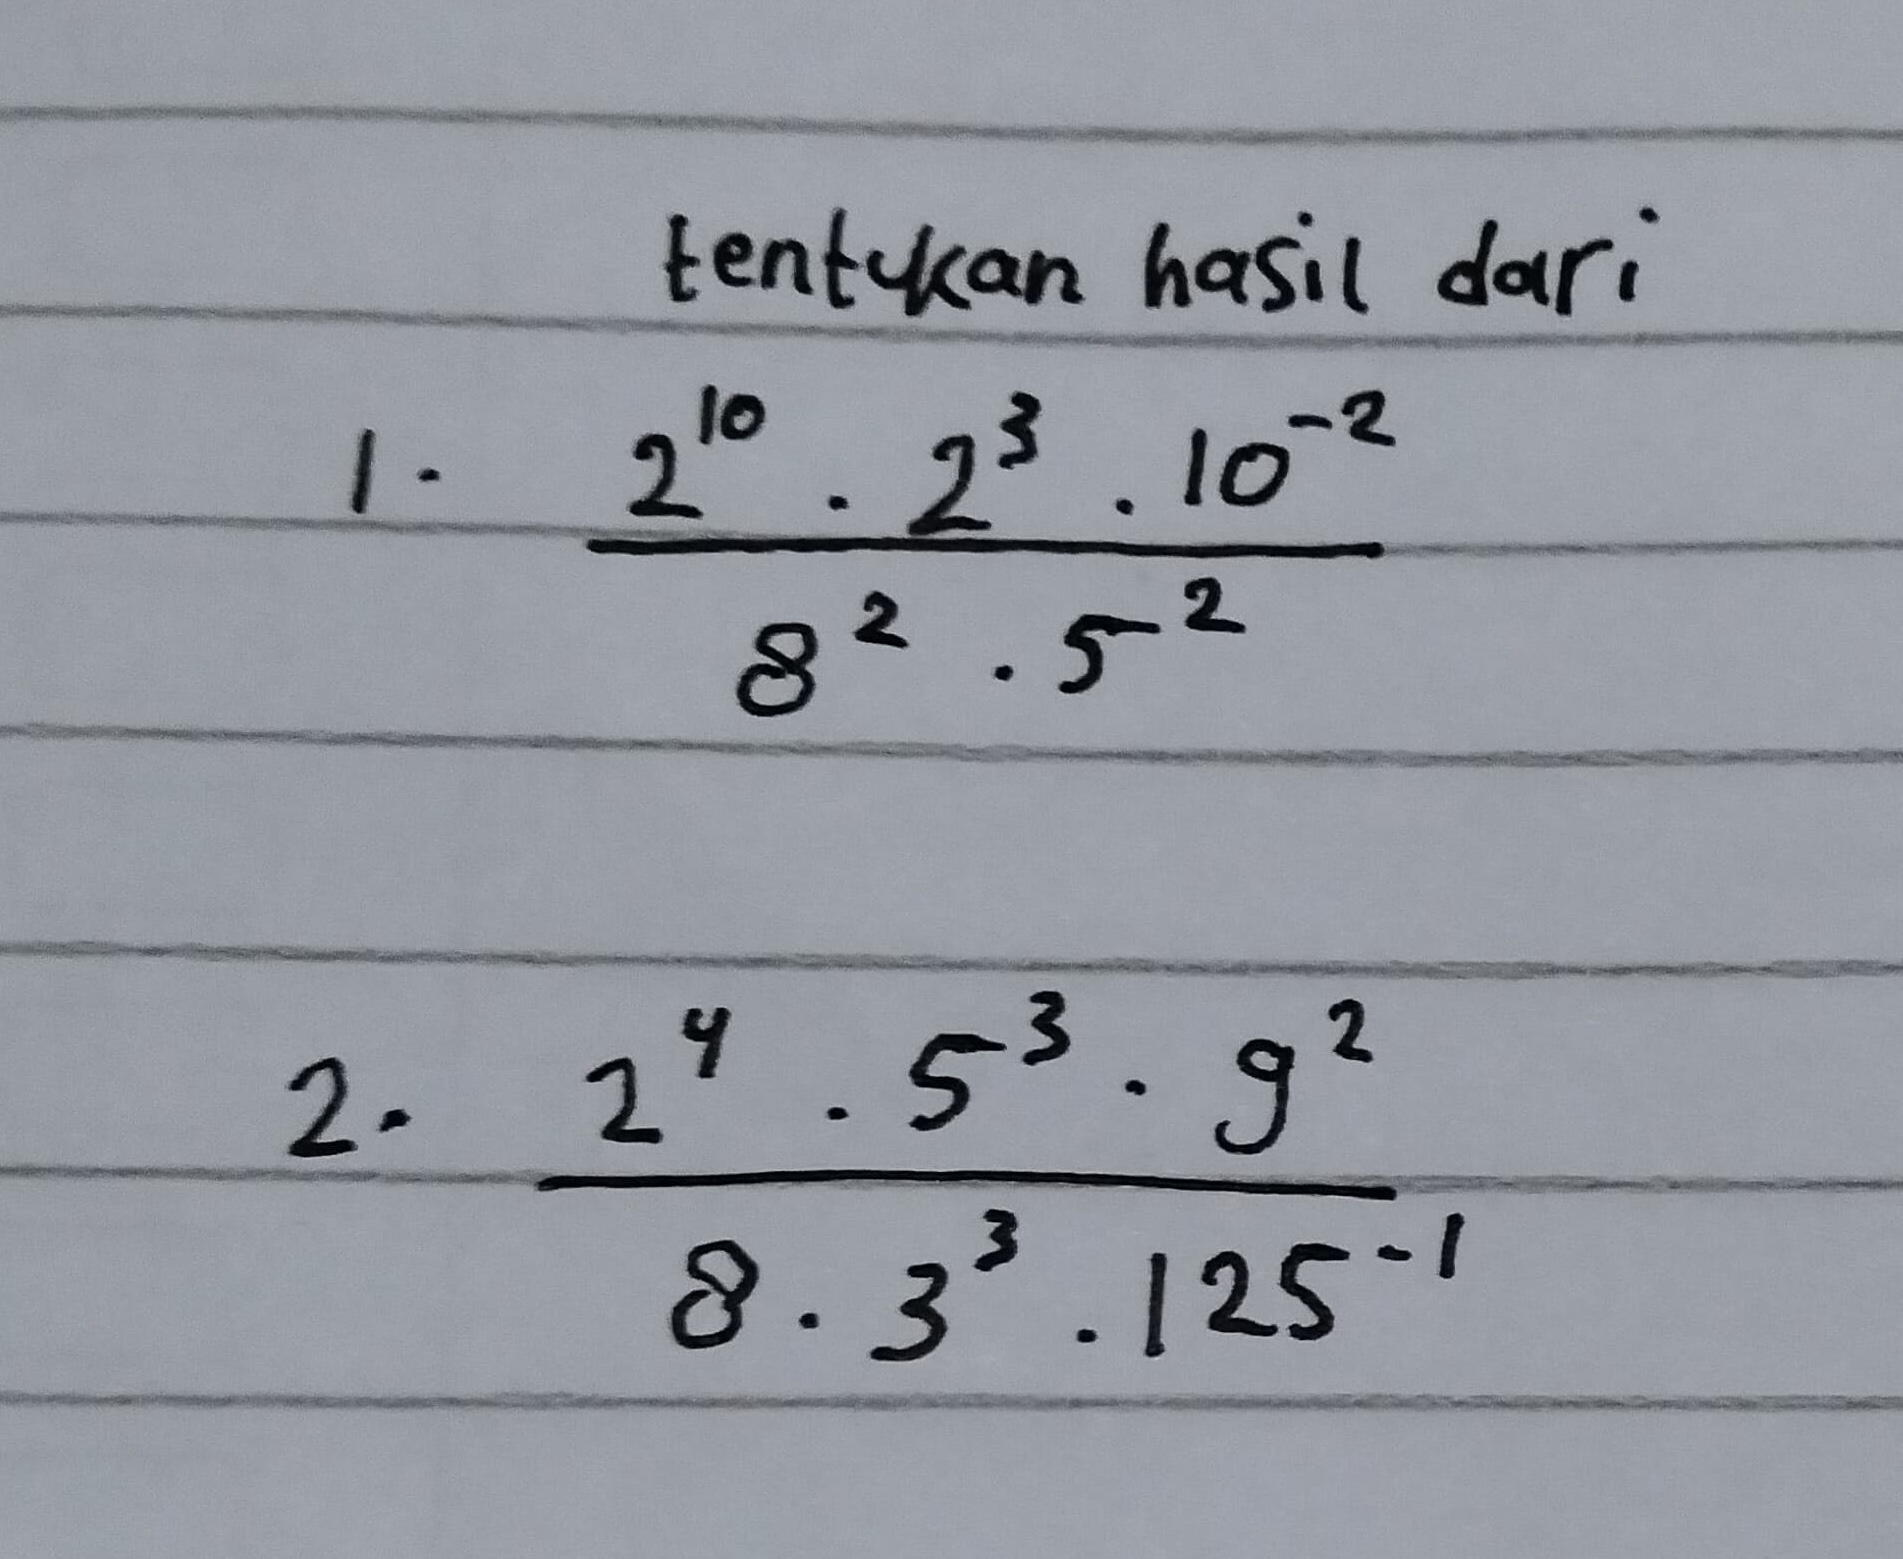 tentukan hasil dari
1. 2^10 . 2^3 . 10^-2
8^2 . 5^2
2. 2^4 . 5^3 . 9^2
8 . 3^3 . 125^-1